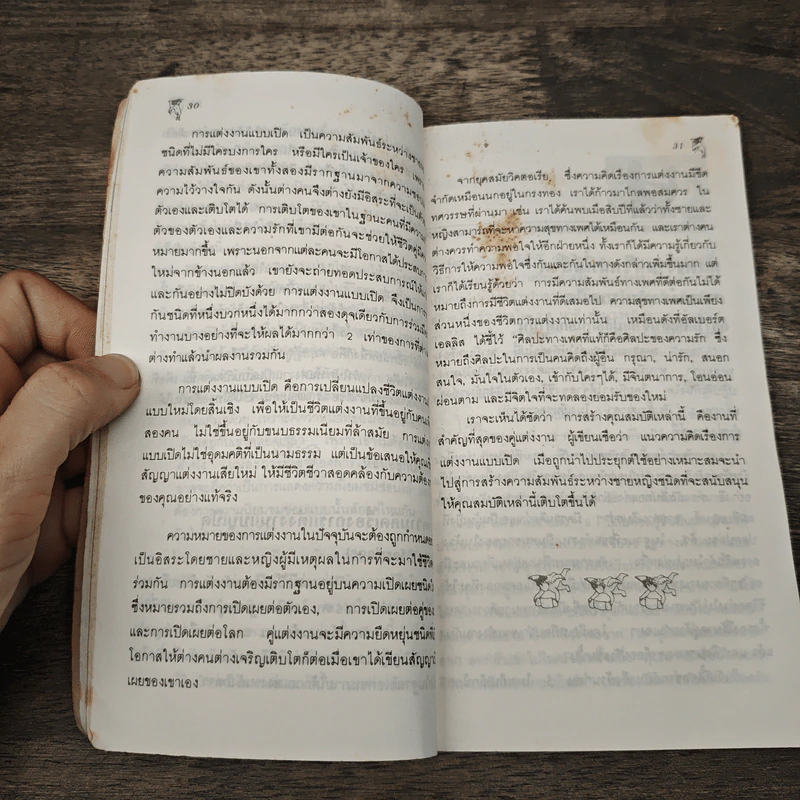 30
การแต่งงานแบบเปิด เป็นความสัมพันธ์ระหว่างชาย
ชนิดที่ไม่มีใครบงการใคร หรือมีใครเป็นเจ้าของใคร เพราะ
ความสัมพันธ์ของเขาทั้งสองมีรากฐานมาจากความชอบ
ความไว้วางใจกัน ดังนั้นต่างคนจึงต่างยังมีอิสระที่จะเป็นตัว
ตัวเองและเติบโตได้ การเติบโตของเขาในฐานะคนที่มีความ
ตัวของตัวเองและความรักที่เขามีต่อกันจะช่วยให้ชีวิตคู่มี
หมายมากขึ้น เพราะนอกจากแต่ละคนจะมีโอกาสได้ประสบ
ใหม่จากข้างนอกแล้ว เขายังจะถ่ายทอดประสบการณ์ให้
และกันอย่างไม่ปิดบังด้วย การแต่งงานแบบเปิด จึงเป็นการ
กันชนิดที่หนึ่งบวกหนึ่งได้มากกว่าสองดุจเดียวกับการร่วมมือ
ทำงานบางอย่างที่จะให้ผลได้มากกว่า 2 เท่าของการที่ต่าง
ต่างทำแล้วนำผลงานรวมกัน
การแต่งงานแบบเปิด คือการเปลี่ยนแปลงชีวิตแต่งงาน
แบบใหม่โดยสิ้นเชิง เพื่อให้เป็นชีวิตแต่งงานที่ขึ้นอยู่กับคน
สองคน ไม่ใช่ขึ้นอยู่กับขนบธรรมเนียมที่ล้าสมัย การแต่ง
แบบเปิดไม่ใช่อุดมคติที่เป็นนามธรรม แต่เป็นข้อเสนอให้คุณ
สัญญาแต่งงานเสียใหม่ ให้มีชีวิตชีวาสอดคล้องกับความต้อง
ของคุณอย่างแท้จริง
ความหมายของการแต่งงานในปัจจุบันจะต้องถูกกำหนด
เป็นอิสระโดยชายและหญิงผู้มีเหตุผลในการที่จะมาใช้ชีวิต
ร่วมกัน การแต่งงานต้องมีรากฐานอยู่บนความเปิดเผยชนิด
ซึ่งหมายรวมถึงการเปิดเผยต่อตัวเอง, การเปิดเผยต่อคู่ของ
และการเปิดเผยต่อโลก คู่แต่งงานจะมีความยืดหยุ่นชนิดที่
โอกาสให้ต่างคนต่างเจริญเติบโตก็ต่อเมื่อเขาได้เขียนสัญญา
เผยของเขาเอง
31
จากยุคสมัยวิคตอเรีย, ซึ่งความคิดเรื่องการแต่งงานมีขีด
จำกัดเหมือนนกอยู่ในกรงทอง เราได้ก้าวมาไกลพอสมควร ใน
ทศวรรษที่ผ่านมา เช่น เราได้ค้นพบเมื่อสิบปีที่แล้วว่าทั้งชายและ
หญิงสามารถที่จะหาความสุขทางเพศได้เหมือนกัน และเราต่างคน
ต่างควรทำความพอใจให้อีกฝ่ายหนึ่ง ทั้งเราก็ได้มีความรู้เกี่ยวกับ
วิธีการให้ความพอใจซึ่งกันและกันในทางดังกล่าวเพิ่มขึ้นมาก แต่
เราก็ได้เรียนรู้ด้วยว่า การมีความสัมพันธ์ทางเพศที่ดีต่อกันไม่ได้
หมายถึงการมีชีวิตแต่งงานที่ดีเสมอไป ความสุขทางเพศเป็นเพียง
ส่วนหนึ่งของชีวิตการแต่งงานเท่านั้น เหมือนดังที่อัลเบอร์ต
เอลลิส ได้ชี้ไว้ "ศิลปะทางเพศที่แท้ก็คือศิลปะของความรัก ซึ่ง
หมายถึงศิลปะในการเป็นคนคิดถึงผู้อื่น กรุณา, น่ารัก, สนอก
สนใจ, มั่นใจในตัวเอง, เข้ากับใครๆได้, มีจินตนาการ, โอนอ่อน
ผ่อนตาม และมีจิตใจที่จะทดลองยอมรับของใหม่
เราจะเห็นได้ชัดว่า การสร้างคุณสมบัติเหล่านี้ คืองานที่
สำคัญที่สุดของคู่แต่งงาน ผู้เขียนเชื่อว่า แนวความคิดเรื่องการ
แต่งงานแบบเปิด เมื่อถูกนำไปประยุกต์ใช้อย่างเหมาะสมจะนำ
ไปสู่การสร้างความสัมพันธ์ระหว่างชายหญิงชนิดที่จะสนับสนุน
ให้คุณสมบัติเหล่านี้เติบโตขึ้นได้